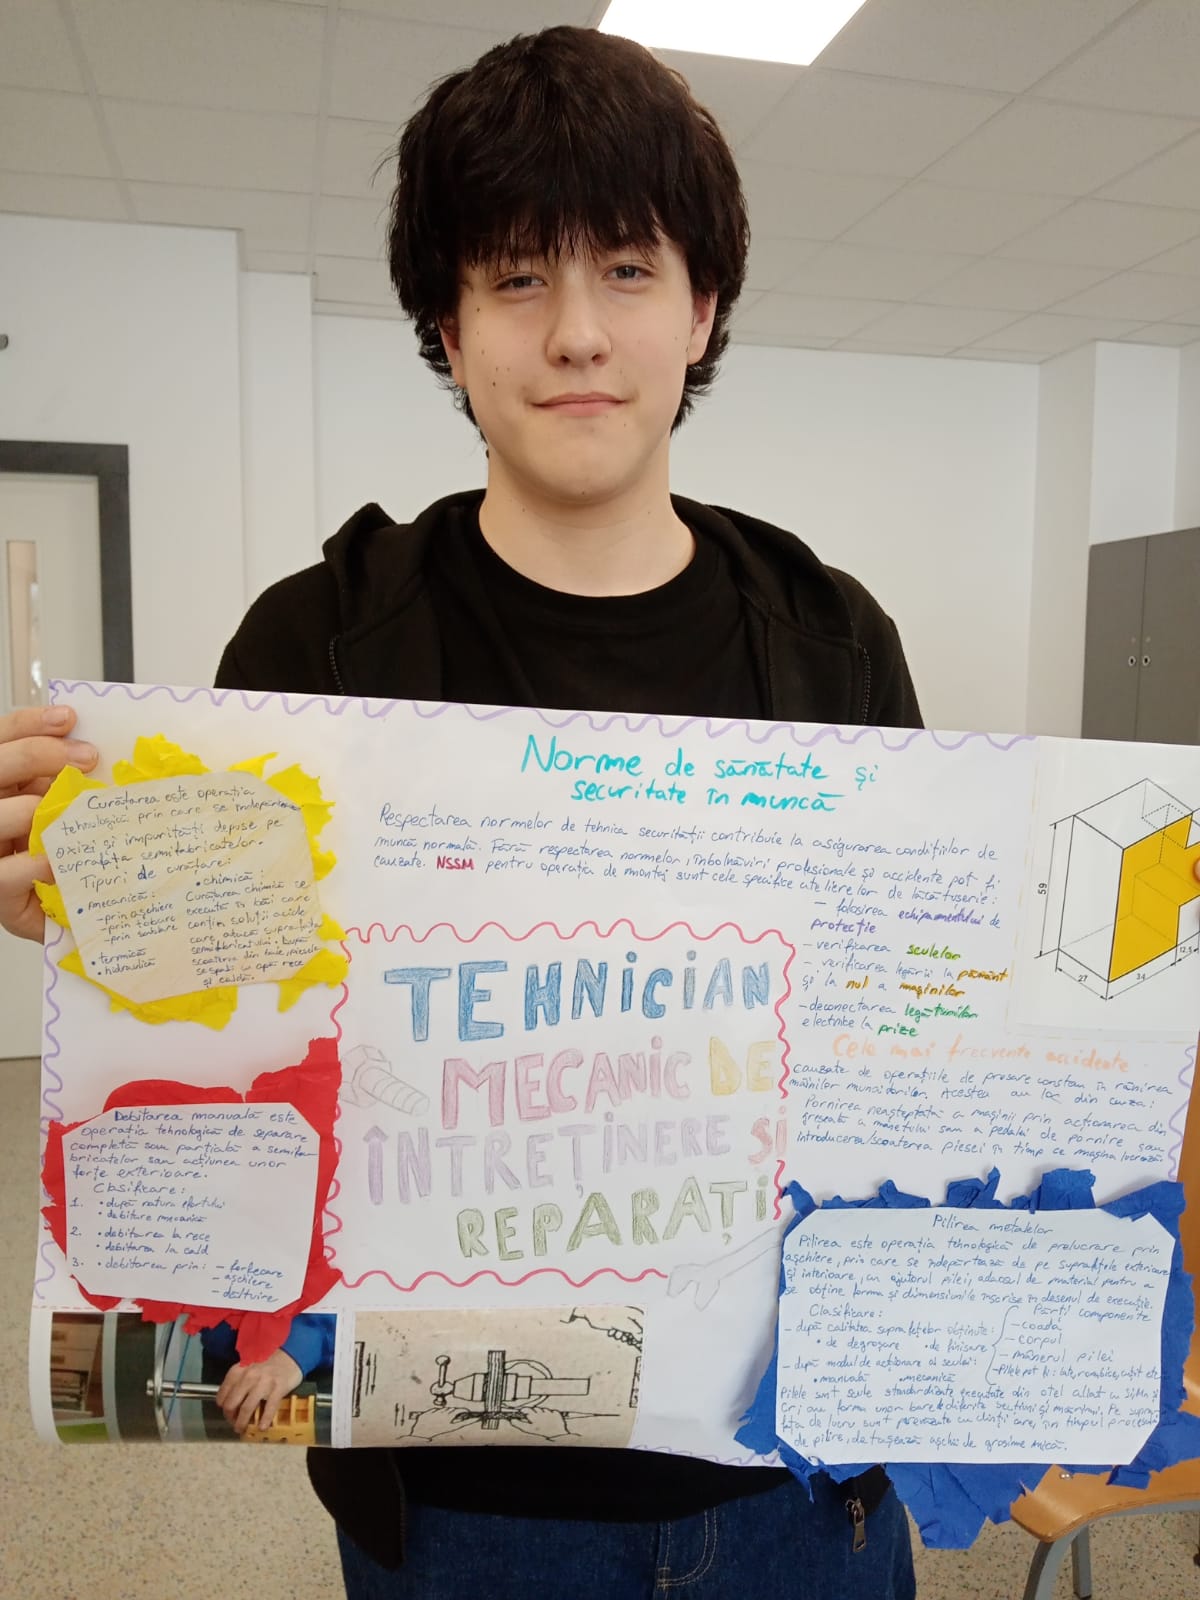 Curățarea este operația
tehnologică prin care se îndepărtează
oxizi și impurități depuse pe
suprafața semifabricatelor.
Tipuri de curățare:
• mecanică:
-prin așchiere
-prin tobare
-prin sablare
• termică
• hidraulică
• chimică:
Curățarea chimică se
execută în băi care
conțin soluții acide
care atacă suprafața
semifabricatului. După
scoaterea din baie, piesele
se spală cu apă rece
și caldă.
Norme de sănătate și
securitate în muncă
Respectarea normelor de tehnica securității contribuie la asigurarea condițiilor de
muncă normală. Fără respectarea normelor, îmbolnăviri profesionale și accidente pot fi
cauzate. NSSM pentru operația de montaj sunt cele specifice atelierelor de lăcătușerie:
- folosirea echipamentului de
protecție
- verificarea sculelor
- verificarea legării la pământ
și la nul a mașinilor
-deconectarea legăturilor
electrice la prize
59
27
34
12.5
Cele mai frecvente accidente
cauzate de operațiile de presare constau în rănirea
mâinilor muncitorilor. Acestea au loc din cauza:
Pornirea neașteptată a mașinii prin acționarea din
greșeală a manetului sau a pedalei de pornire sau
introducerea/scoaterea piesei în timp ce mașina lucrează.
TEHNICIAN
MECANIC DE
ÎNTREȚINERE ȘI
REPARAȚI
Debitarea manuală este
operația tehnologică de separare
completă sau parțială a semifa-
bricatelor sau acțiunea unor
forțe exterioare.
Clasificare:
1. • după natura efortului
• debitare mecanică
2. • debitarea la rece
• debitarea la cald
3. • debitarea prin: - forfecare
- așchiere
- dăltuire
Pilirea metalelor
Pilirea este operația tehnologică de prelucrare prin
așchiere, prin care se îndepărtează de pe suprafețele exterioare
și interioare, cu ajutorul pilei, adaosul de material pentru a
se obține forma și dimensiunile înscrise în desenul de execuție.
Clasificare:
- după calitatea suprafețelor obținute:
• de degroșare • de finisare
- după modul de acționare al sculei:
• manuală • mecanică
Părți componente
- coada
- corpul
- mânerul pilei
-Pilele pot fi: late, rombice, cuțit etc.
Pilele sunt scule standardizate executate din oțel aliat cu Si, Mn și
Cr; au forma unor bare de diferite secțiuni și mărimi. Pe supra-
fața de lucru sunt prevăzute cu dinți care, în timpul procesului
de pilire, detașează așchii de grosime mică.